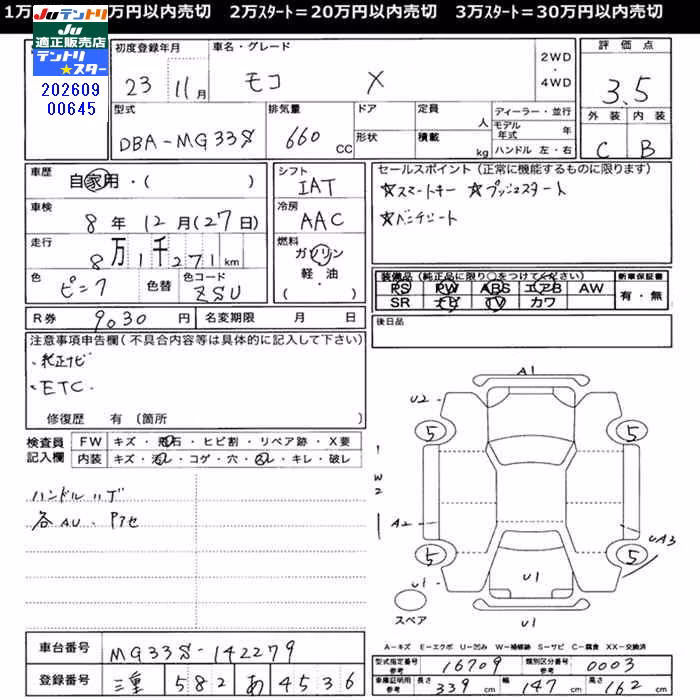 1万 万円以内売切 2万スタート＝20万円以内売切 3万スタート＝30万円以内売切
JUテントリ
JU
適正販売店
テントリ
★スター
202609
00645
初度登録年月
23 11月
車名・グレード
モコ X
2WD
・
4WD
評価点
3.5
外装 内装
C B
型式
DBA-MG33S
排気量
660 cc
ドア
形状
定員 人
積載 kg
ディーラー・並行
モデル年式 年
ハンドル 左・右
車歴
自家用・( )
シフト
IAT
セールスポイント (正常に機能するものに限ります)
☆スマートキー ☆プッシュスタート
☆ベンチシート
車検
8年 12月(27日)
冷房
AAC
走行
8万1千271km
燃料
ガソリン
軽・油
( )
色
ピンク
色替
色コード
ZSU
装備品 (純正品に限り○をつけてください)
PS PW ABS エアB AW
SR ナビ TV カワ
新車保証書
有・無
R券 9030円
名変期限 月 日
後日品
注意事項申告欄(不具合内容等は具体的に記入して下さい)
・純正ナビ
・ETC.
修復歴 有 (箇所 )
検査員
記入欄
FW キズ・飛石・ヒビ割・リペア跡・X要
内装 キズ・汚レ・コゲ・穴・スレ・キレ・破レ
ハンドルハゲ
各AU.
A1
U2
5 5
W2
A2
UA3
5 5
U1
U1
U1
スペア
A-キズ E-エクボ U-凹み W-補修跡 S-サビ C-腐食 XX-交換済
車台番号 MG33S-142279
登録番号 三重 582 あ 4536
型式指定番号 参考 16709
類別区分番号 参考 0003
車庫証明用 参考 長さ 339cm 幅 147cm 高さ 162cm